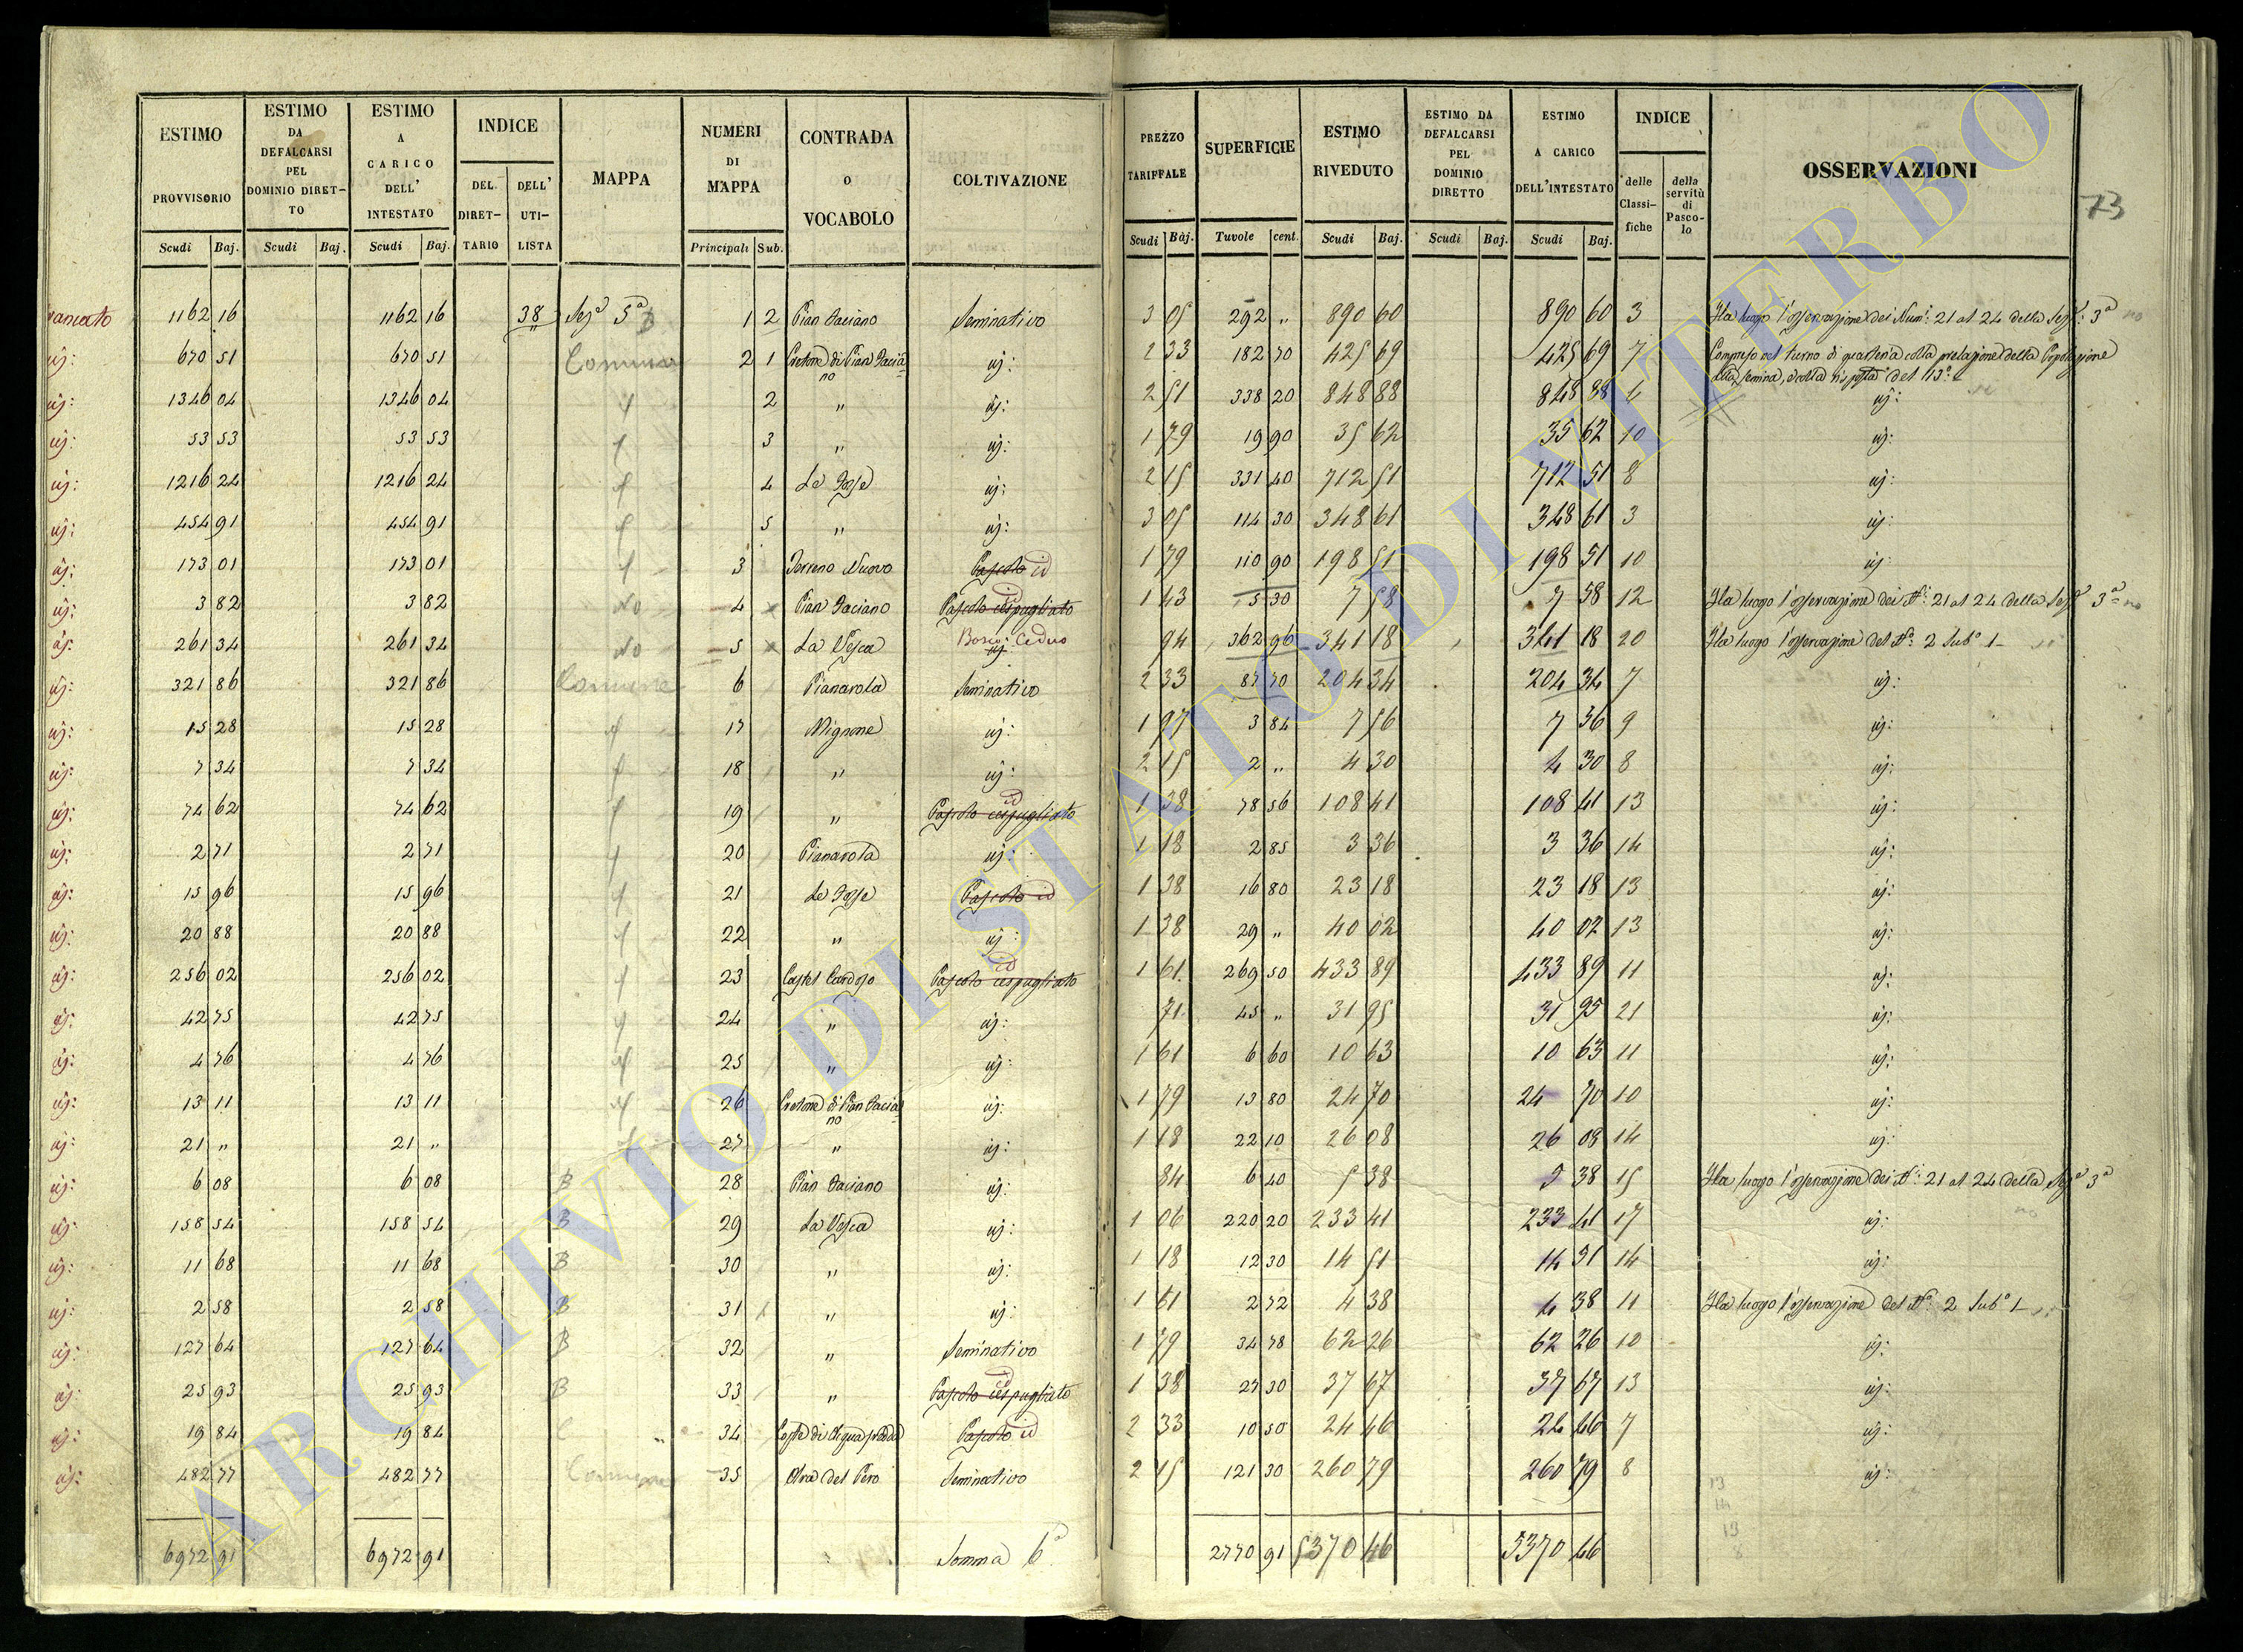 ESTIMO PROVVISORIO Scudi Baj.
ESTIMO DA DEFALCARSI PEL DOMINIO DIRET- TO Scudi Baj.
ESTIMO A CARICO DELL' INTESTATO Scudi Baj.
INDICE DEL DIRET- TARIO DELL' UTI- LISTA
MAPPA
NUMERI DI MAPPA Principali Sub.
CONTRADA O VOCABOLO
COLTIVAZIONE
PREZZO TARIFFALE Scudi Baj.
SUPERFICIE Tuvole cent.
ESTIMO RIVEDUTO Scudi Baj.
ESTIMO DA DEFALCARSI PEL DOMINIO DIRETTO Scudi Baj.
ESTIMO A CARICO DELL'INTESTATO Scudi Baj.
INDICE delle Classi- fiche della servitù di Pasco- lo
OSSERVAZIONI
73
1162 16 1162 16 38 Sez.ª 5ª B 1 2 Pian Daciano Seminativo 3 05 292 " 890 60 890 60 3 Ha luogo l'osservazione dei Num.i 21 al 24 della Sez.e 3ª no
id: 670 51 670 51 Comune 2 1 Cretone di Pian Dacia= no id: 2 33 182 70 425 69 425 69 7 Compreso nel turno di quarteria colla prelazione della Popolazione
alla semina, e colla risposta del 13º
id: 1346 04 1346 04 2 " id: 2 51 338 20 848 88 848 88 4 id:
id: 53 53 53 53 3 " id: 1 79 19 90 35 62 35 62 10 id:
id: 1216 24 1216 24 4 Le Fosse id: 2 15 331 40 712 51 712 51 8 id:
id: 454 91 454 91 5 " id: 3 05 114 30 348 61 348 61 3 id:
id: 173 01 173 01 3 Terreno Nuovo Pascolo id 1 79 110 90 198 51 198 51 10 id
id: 3 82 3 82 No 4 Pian Daciano Pascolo cespugliato id 1 43 5 30 7 58 7 58 12 Ha luogo l'osservazione dei N.i 21 al 24 della Sez.e 3ª no
id: 261 34 261 34 No 5 La Vesca Bosco Ceduo id 94 362 96 341 18 341 18 20 Ha luogo l'osservazione del N.º 2 Sub.º 1
id: 321 86 321 86 Comune 6 Pianarola Seminativo 2 33 87 70 204 34 204 34 7 id:
id: 15 28 15 28 17 Mignone id: 1 97 3 84 7 56 7 56 9 id:
id: 7 34 7 34 18 " id: 2 15 2 " 4 30 4 30 8 id:
id: 74 62 74 62 19 " Pascolo cespugliato id 1 38 78 56 108 41 108 41 13 id:
id: 2 71 2 71 20 Pianarola id: 1 18 2 85 3 36 3 36 14 id:
id: 15 96 15 96 21 Le Fosse Pascolo id 1 38 16 80 23 18 23 18 13 id:
id: 20 88 20 88 22 " id: 1 38 29 " 40 02 40 02 13 id:
id: 256 02 256 02 23 Castel Cardoso Pascolo cespugliato id 1 61 269 50 433 89 433 89 11 id:
id: 42 75 42 75 24 " id: 71 45 " 31 95 31 95 21 id:
id: 4 76 4 76 25 " id: 1 61 6 60 10 63 10 63 11 id:
id: 13 11 13 11 26 Cretone di Pian Dacia= no id: 1 79 13 80 24 70 24 70 10 id:
id: 21 " 21 " 27 " id: 1 18 22 10 26 08 26 08 14 id:
id: 6 08 6 08 B 28 Pian Daciano id: 84 6 40 5 38 5 38 15 Ha luogo l'osservazione dei N.i 21 al 24 della Sez.e 3ª
id: 158 54 158 54 B 29 La Vesca id: 1 06 220 20 233 41 233 41 17 id: no
id: 11 68 11 68 B 30 " id: 1 18 12 30 14 51 14 51 14 id:
id: 2 58 2 58 B 31 " id: 1 61 2 72 4 38 4 38 11 Ha luogo l'osservazione del N.º 2 Sub.º 1
id: 127 64 127 64 B 32 " Seminativo 1 79 34 78 62 26 62 26 10 id:
id: 25 93 25 93 B 33 " Pascolo cespugliato id 1 38 27 30 37 67 37 67 13 id:
id: 19 84 19 84 C 34 Coste di Pascolo id 2 33 10 50 24 46 24 46 7 id:
id: 482 77 482 77 Comune 35 Ara del Pero Seminativo 2 15 121 30 260 79 260 79 8 id:
6972 91 6972 91 Somma 6ª 2770 91 5370 46 5370 46
ARCHIVIO DI STATO DI VITERBO